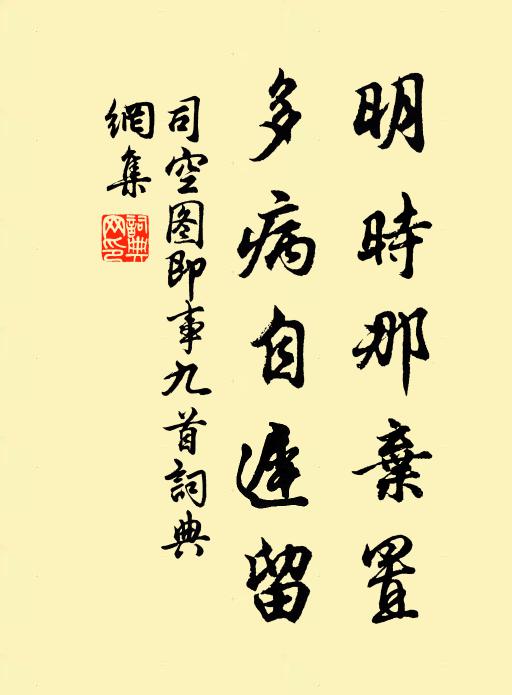 明時那棄置
多病自遲留
司空图即事九首詞典
網集
詞典
网印